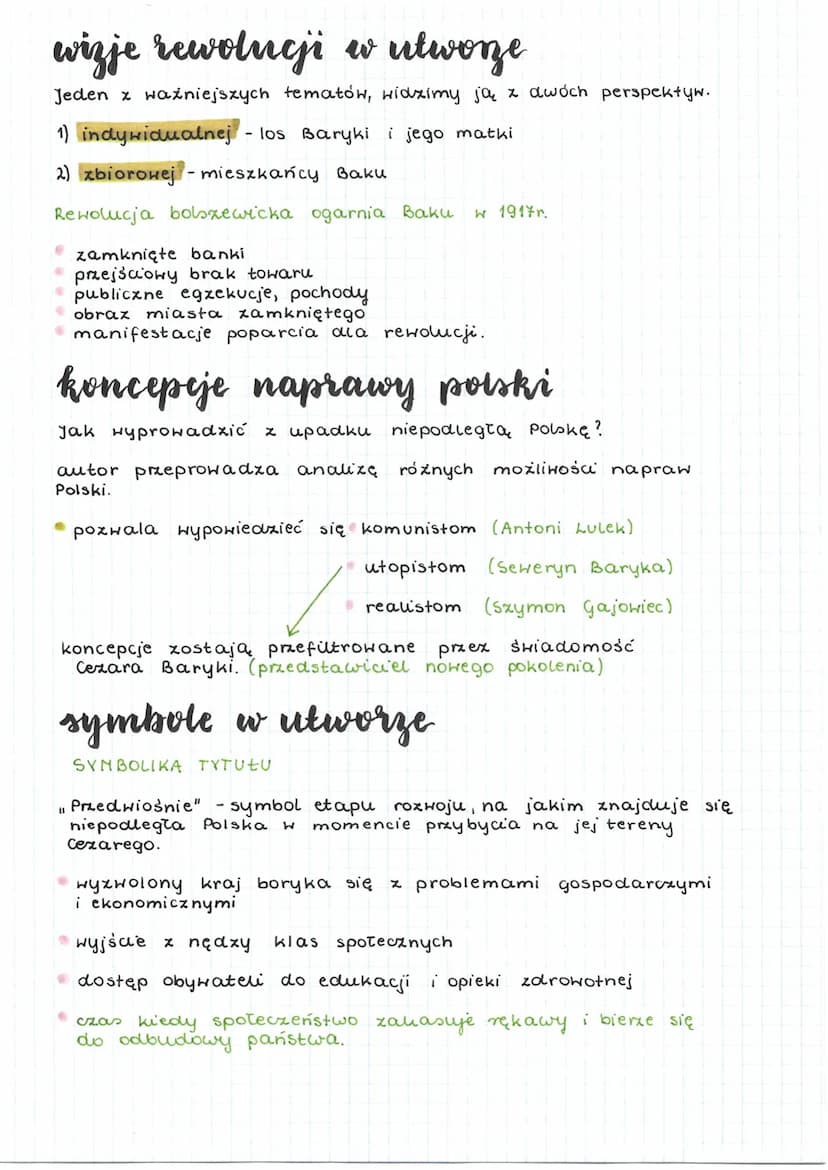 wizje rewolucji w utworze
Jeden z ważniejszych tematów, widzimy ją z dwóch perspektyw.
1) indywidualnej - los Baryki i jego matki
2) zbiorowej - mieszkańcy Baku
Rewolucja bolszewicka ogarnia Baku w 1917r.
• zamknięte banki
• przejściowy brak towaru
• publiczne egzekucje, pochody
• obraz miasta zamkniętego
• manifestacje poparcia dla rewolucji.
koncepcje naprawy polski
Jak wyprowadzić z upadku niepodległą Polskę?
autor przeprowadza analizę różnych możliwości napraw
Polski.
• pozwala wypowiedzieć się • komunistom (Antoni Lulek)
• utopistom (Seweryn Baryka)
• realistom (Szymon Gajowiec)
koncepcje zostają przefiltrowane przez świadomość
Cezara Baryki. (przedstawiciel nowego pokolenia)
symbole w utworze
SYMBOLIKA TYTUŁU
„Przedwiośnie" - symbol etapu rozwoju, na jakim znajduje się
niepodległa Polska w momencie przybycia na jej tereny
Cezarego.
• wyzwolony kraj boryka się z problemami gospodarczymi
i ekonomicznymi
• wyjście z nędzy klas społecznych
• dostęp obywateli do edukacji i opieki zdrowotnej
• czas kiedy społeczeństwo zakasuje rękawy i bierze się
do odbudowy państwa.